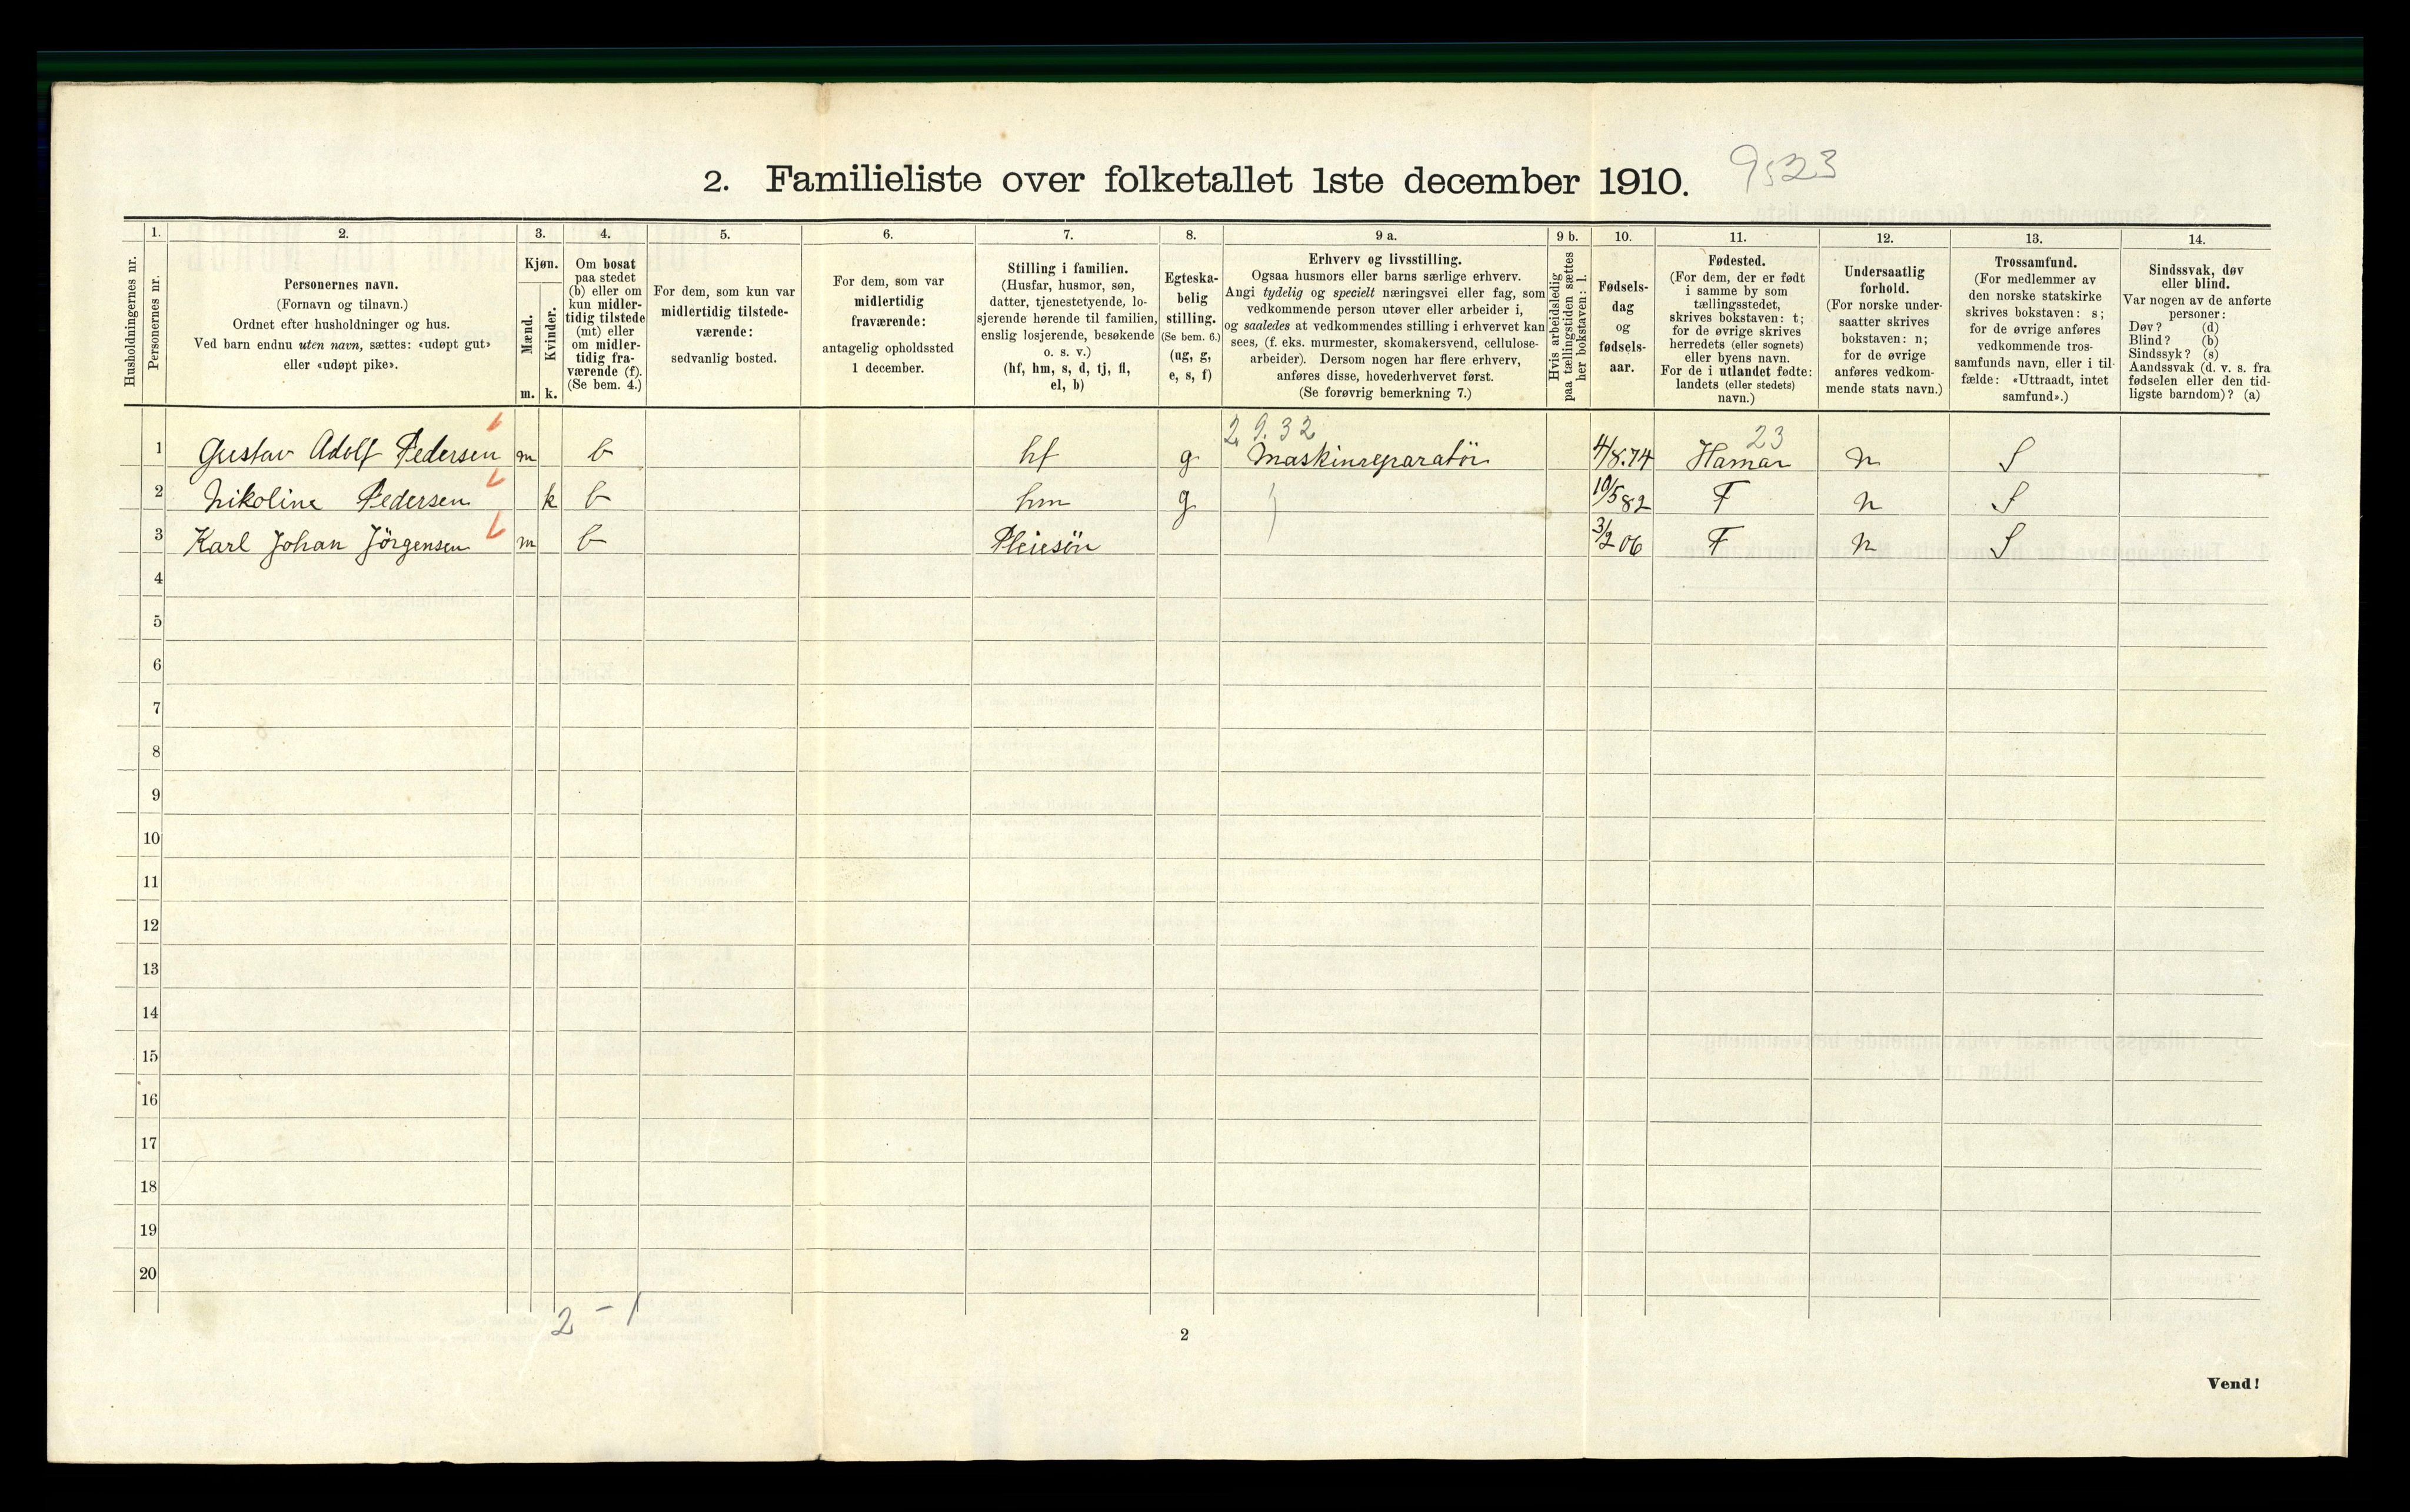 2. Familieliste over folketallet 1ste december 1910. 9523
Husholdningernes nr.
1.
Personernes nr.
2.
Personernes navn.
(Fornavn og tilnavn.)
Ordnet efter husholdninger og hus.
Ved barn endnu uten navn, sættes: «udøpt gut»
eller «udøpt pike».
3.
Kjøn.
Mænd.
m.
Kvinder.
k.
4.
Om bosat
paa stedet
(b) eller om
kun midler-
tidig tilstede
(mt) eller
om midler-
tidig fra-
værende (f).
(Se bem. 4.)
5.
For dem, som kun var
midlertidig tilstede-
værende:
sedvanlig bosted.
6.
For dem, som var
midlertidig
fraværende:
antagelig opholdssted
1 december.
7.
Stilling i familien.
(Husfar, husmor, søn,
datter, tjenestetyende, lo-
sjerende hørende til familien,
enslig losjerende, besøkende
o. s. v.)
(hf, hm, s, d, tj, fl,
el, b)
8.
Egteska-
belig
stilling.
(Se bem. 6.)
(ug, g,
e, s, f)
9 a.
Erhverv og livsstilling.
Ogsaa husmors eller barns særlige erhverv.
Angi tydelig og specielt næringsvei eller fag, som
vedkommende person utøver eller arbeider i,
og saaledes at vedkommendes stilling i erhvervet kan
sees, (f. eks. murmester, skomakersvend, cellulose-
arbeider). Dersom nogen har flere erhverv,
anføres disse, hovederhvervet først.
(Se forøvrig bemerkning 7.)
9 b.
Hvis arbeidsledig
paa tællingstiden sættes
her bokstaven: l.
10.
Fødsels-
dag
og
fødsels-
aar.
11.
Fødested.
(For dem, der er født
i samme by som
tællingsstedet,
skrives bokstaven: t;
for de øvrige skrives
herredets (eller sognets)
eller byens navn.
For de i utlandet fødte:
landets (eller stedets)
navn.)
12.
Undersaatlig
forhold.
(For norske under-
saatter skrives
bokstaven: n;
for de øvrige
anføres vedkom-
mende stats navn.)
13.
Trossamfund.
(For medlemmer av
den norske statskirke
skrives bokstaven: s;
for de øvrige anføres
vedkommende tros-
samfunds navn, eller i til-
fælde: «Uttraadt, intet
samfund».)
14.
Sindssvak, døv
eller blind.
Var nogen av de anførte
personer:
Døv? (d)
Blind? (b)
Sindssyk? (s)
Aandssvak (d. v. s. fra
fødselen eller den tid-
ligste barndom)? (a)
2.9.32 23
1 Gustav Adolf Pedersen m b hf g Maskinreparatör 4/8.74 Hamar n S
2 Nikoline Pedersen k b hm g 10/5 82 F n S
3 Karl Johan Jörgensen m b Pleiesön 3/2 06 F n S
4
5
6
7
8
9
10
11
12
13
14
15
16
17
18
19
20
2 - 1
2
Vend!